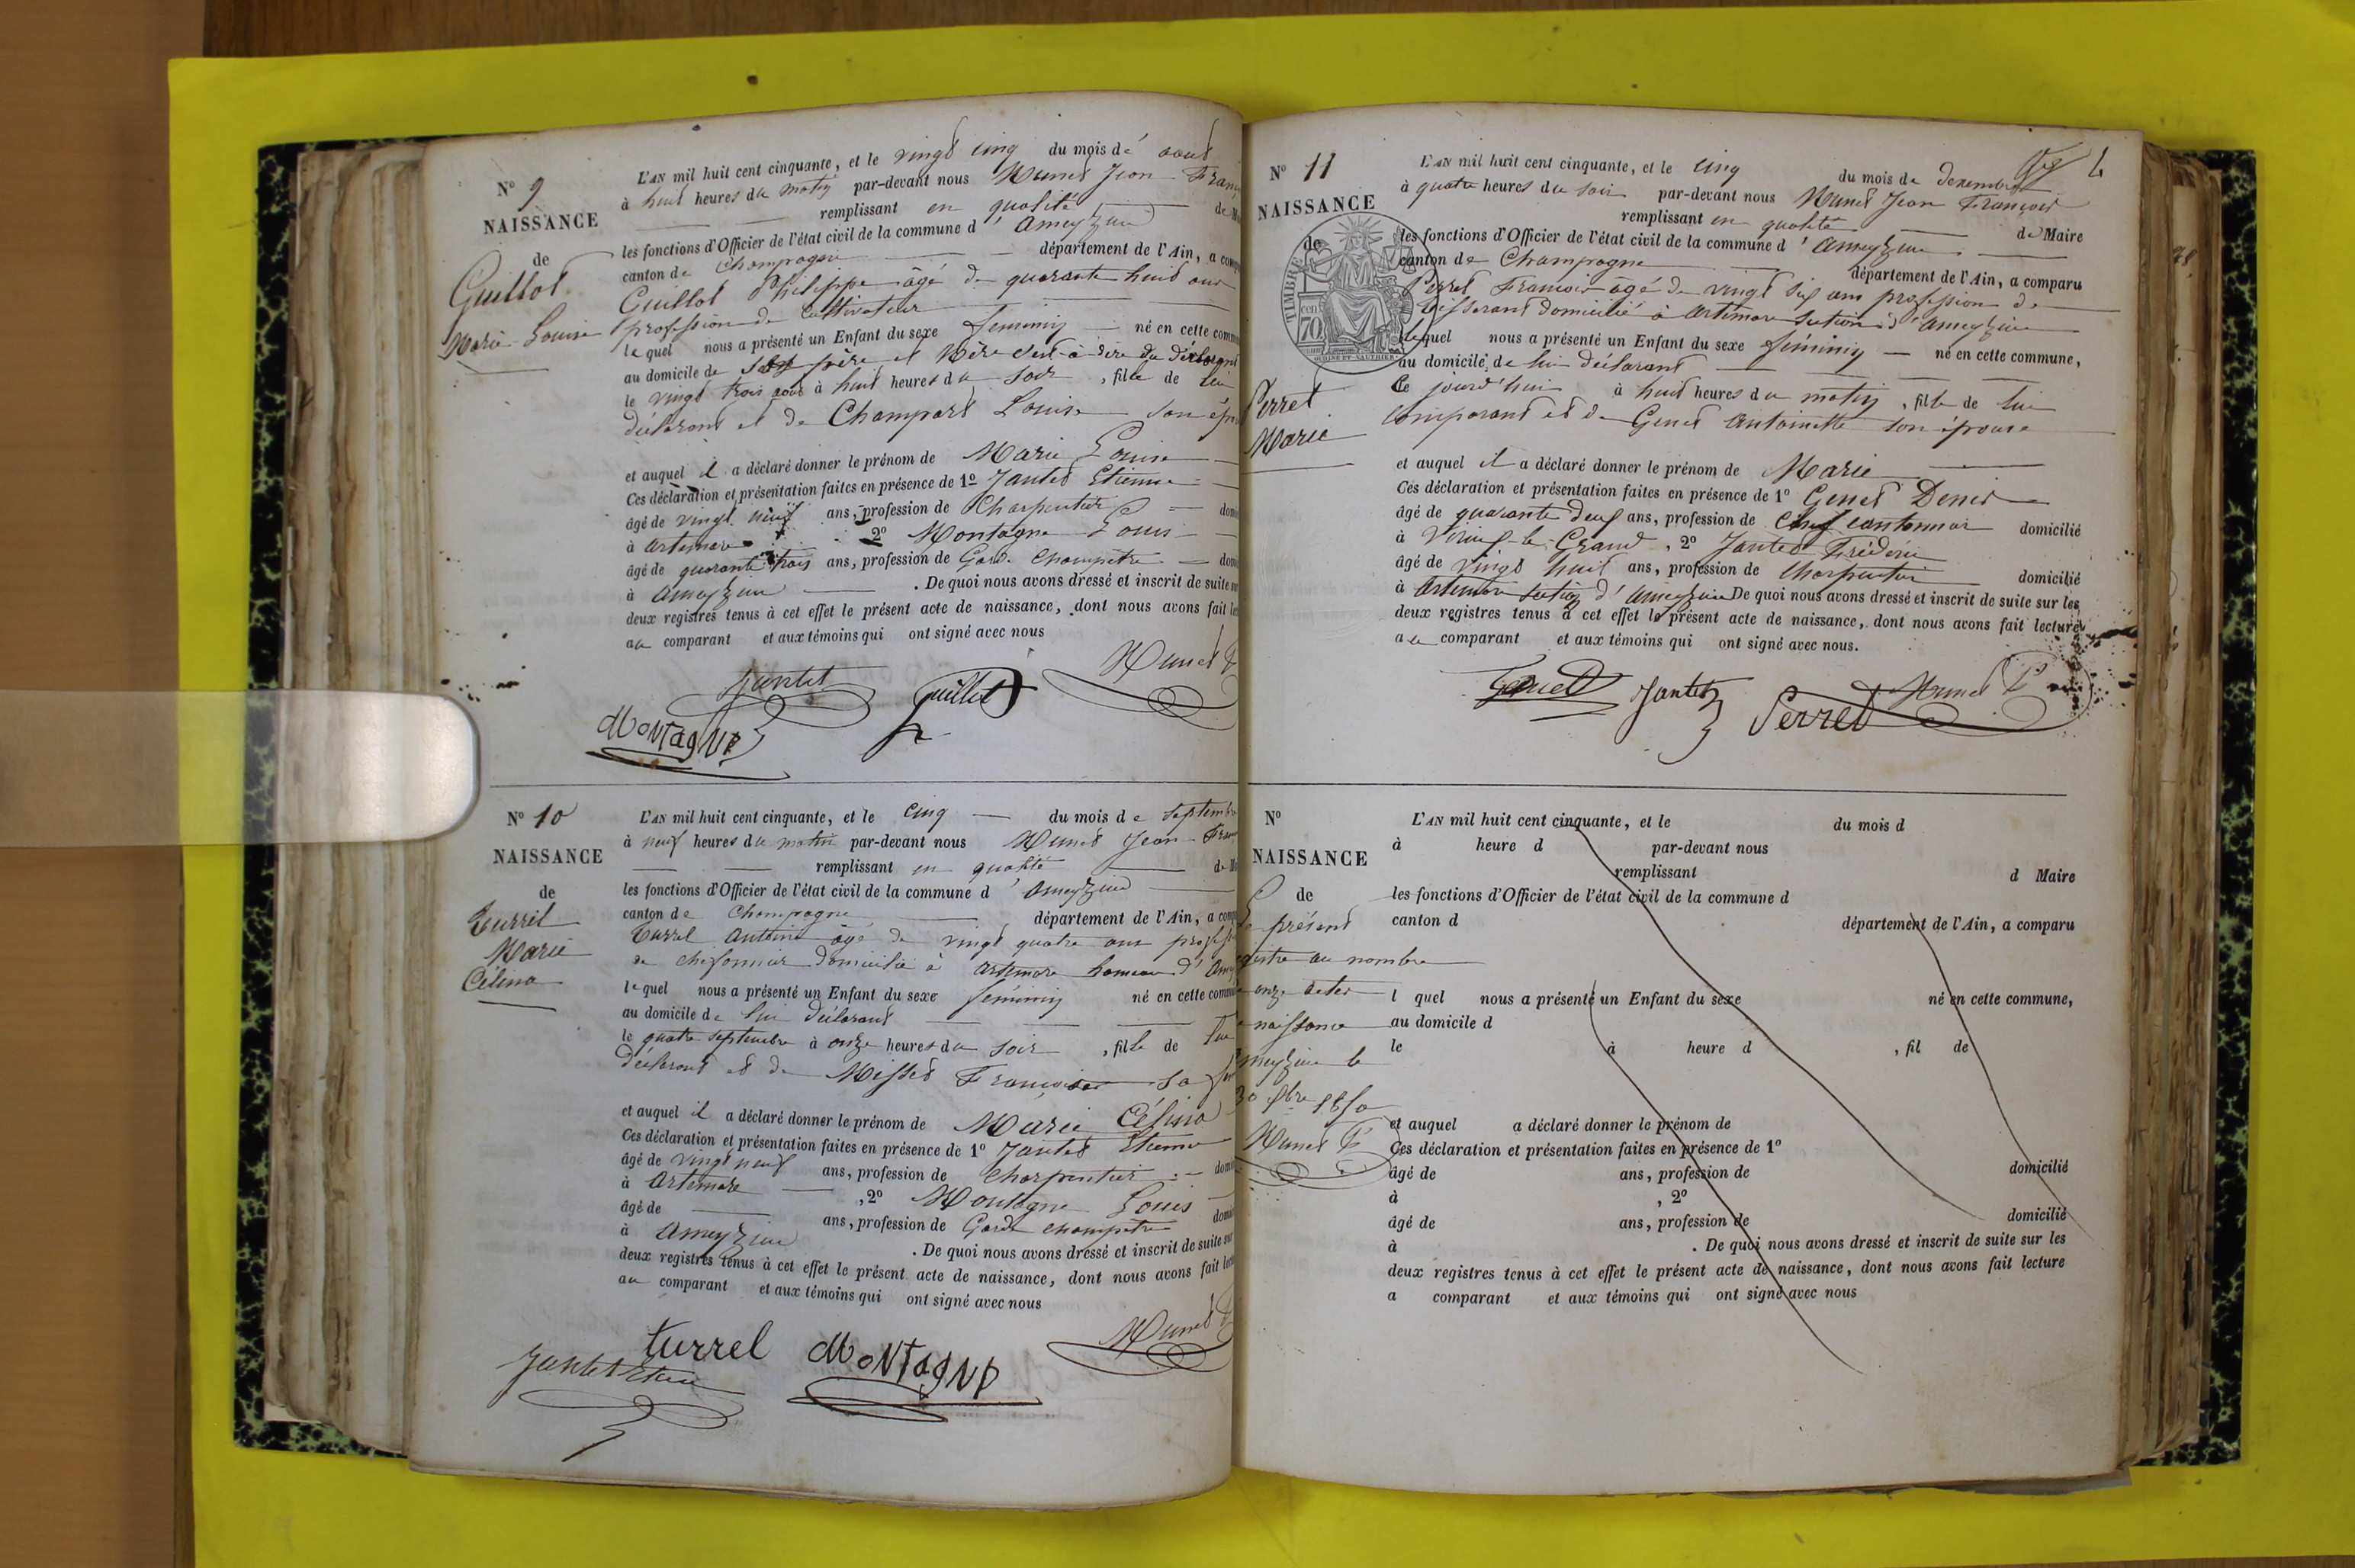 N° 9
NAISSANCE
de
Guillot
Marie Louise
L'AN mil huit cent cinquante, et le vingt cinq du mois de aout
à huit heures du matin par-devant nous Munet Jean Franç
remplissant en qualité de M
les fonctions d'Officier de l'état civil de la commune d'Ameyzieu
canton de Champagne département de l'Ain, a comp
Guillot Philippe âgé de quarante huit ans
profession de Cultivateur
lequel nous a présenté un Enfant du sexe féminin né en cette commu
au domicile de ses père et Mère c'est-à-dire du déclarant
le vingt trois aout à huit heures du soir, fille de lui
déclarant et de Champart Louise son ép
et auquel il a déclaré donner le prénom de Marie Louise
Ces déclaration et présentation faites en présence de 1° Jantet Etienne
âgé de vingt neuf ans, profession de Charpentier dom
à Artemare 2° Montagne Louis
âgé de quarante trois ans, profession de Garde champêtre dom
à Ameyzieu . De quoi nous avons dressé et inscrit de suite su
deux registres tenus à cet effet le présent acte de naissance, dont nous avons fait le
au comparant et aux témoins qui ont signé avec nous
Jantet Guillot Munet F
MONTAGNE
N° 10
NAISSANCE
de
Turrel
Marie
Célina
L'AN mil huit cent cinquante, et le cinq du mois de septembre
à neuf heures du matin par-devant nous Munet Jean Fran
remplissant en qualité de M
les fonctions d'Officier de l'état civil de la commune d'Ameyzieu
canton de Champagne département de l'Ain, a comp
Turrel Antoine âgé de vingt quatre ans profess
de chifonnier domicilié à Artemare hameau d'Amey
lequel nous a présenté un Enfant du sexe féminin né en cette commu
au domicile de lui déclarant
le quatre septembre à onze heures du soir, fille de lui
déclarant et de Misset Françoise sa fem
et auquel il a déclaré donner le prénom de Marie Célina
Ces déclaration et présentation faites en présence de 1° Jantet Etienne
âgé de vingt neuf ans, profession de Charpentier domi
à Artemare , 2° Montagne Louis
âgé de ans, profession de Garde champêtre domi
à Ameyzieu . De quoi nous avons dressé et inscrit de suite su
deux registres tenus à cet effet le présent acte de naissance, dont nous avons fait lect
au comparant et aux témoins qui ont signé avec nous
turrel MONTAGNE Munet F
Jantet Etienne
4
N° 11
NAISSANCE
de
TIMBRE
70
Perret
Marie
L'AN mil huit cent cinquante, et le cinq du mois de decembre
à quatre heures du soir par-devant nous Munet Jean François
remplissant en qualité de Maire
les fonctions d'Officier de l'état civil de la commune d'Ameyzieu
canton de Champagne département de l'Ain, a comparu
Perret François âgé de vingt six ans profession de
tisserand domicilié à Artemare section d'Ameyzieu
lequel nous a présenté un Enfant du sexe féminin né en cette commune,
au domicile de lui déclarant
Ce jourd'hui à huit heures du matin, fille de lui
comparant et de Genet Antoinette son épouse
et auquel il a déclaré donner le prénom de Marie
Ces déclaration et présentation faites en présence de 1° Genet Denis
âgé de quarante deux ans, profession de Chef cantonnier domicilié
à Virieu-le-Grand, 2° Jantet Frédéric
âgé de vingt huit ans, profession de Charpentier domicilié
à Artemare section d'Ameyzieu De quoi nous avons dressé et inscrit de suite sur les
deux registres tenus à cet effet le présent acte de naissance, dont nous avons fait lecture
au comparant et aux témoins qui ont signé avec nous.
Genet Jantet Perret Munet F
N°
NAISSANCE
de
Le présent
gistre au nombre
onze actes
naissance
Ameyzieu le
1850
Munet F
L'AN mil huit cent cinquante, et le du mois d
à heure d par-devant nous
remplissant d Maire
les fonctions d'Officier de l'état civil de la commune d
canton d département de l'Ain, a comparu
l quel nous a présenté un Enfant du sexe né en cette commune,
au domicile d
le à heure d , fil de
et auquel a déclaré donner le prénom de
Ces déclaration et présentation faites en présence de 1°
âgé de ans, profession de domicilié
à , 2°
âgé de ans, profession de domicilié
à . De quoi nous avons dressé et inscrit de suite sur les
deux registres tenus à cet effet le présent acte de naissance, dont nous avons fait lecture
a comparant et aux témoins qui ont signé avec nous